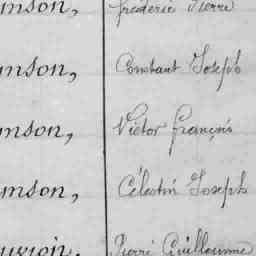 mson, Frédéric Pierre
mson, Constant Joseph
mson, Victor François
mson, Célestin Joseph
Pierre Guillaume